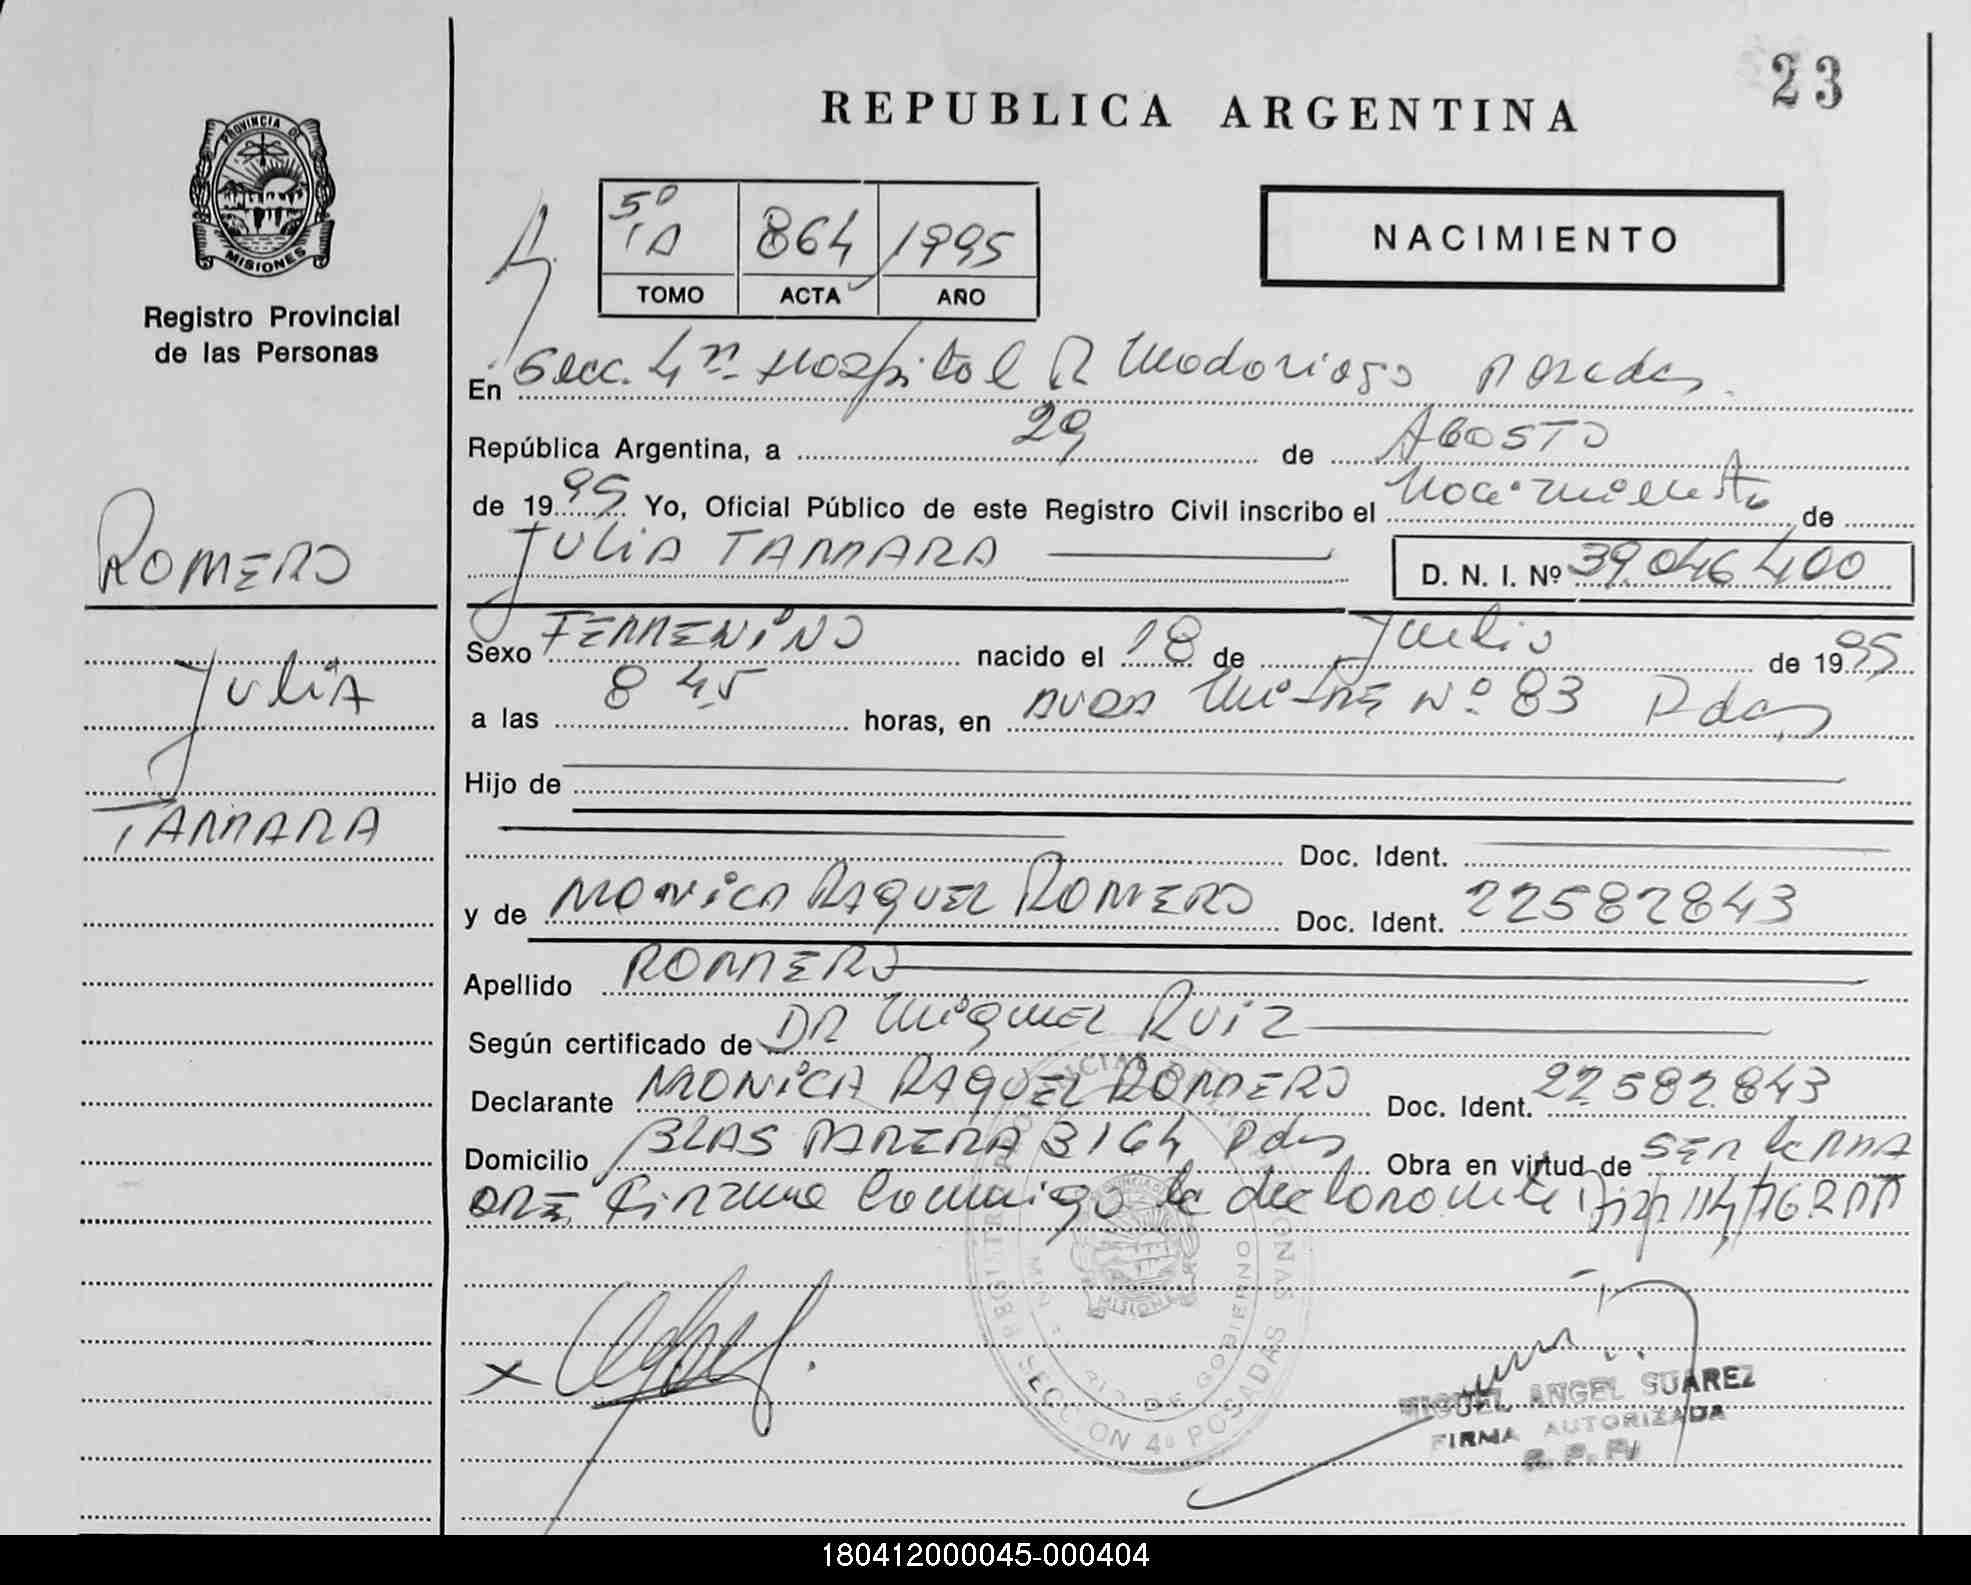 23
REPUBLICA ARGENTINA
PROVINCIA DE
MISIONES
Registro Provincial
de las Personas
5º
1A 864 1995
TOMO ACTA AÑO
NACIMIENTO
En Secc. 4ª Hospital R Madariaga Posadas
República Argentina, a 29 de AGOSTO
de 1995 Yo, Oficial Público de este Registro Civil inscribo el Nacimiento de
JULIA TAMARA D. N. I. Nº 39.046.400
ROMERO
JULIA
TAMARA
Sexo FEMENINO nacido el 18 de Julio de 1995
a las 8 45 horas, en AVDA MITRE Nº 83 Pdas
Hijo de
Doc. Ident.
y de MONICA RAQUEL ROMERO Doc. Ident. 22582843
Apellido ROMERO
Según certificado de DR MIGUEL RUIZ
Declarante MONICA RAQUEL ROMERO Doc. Ident. 22582843
Domicilio BLAS PARERA 3164 Pdas Obra en virtud de SER LA MA
DRE, Firma Conmigo la declarante
SECCION 4ª POSADAS
MISIONES
MIGUEL ANGEL SUAREZ
FIRMA AUTORIZADA
R. P. P.
180412000045-000404